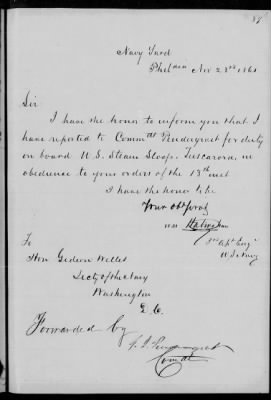 Navy Yard
Phil.dia Nov 23rd 1861
Sir
I have the honor to inform you that I
have reported to Commdt Pendergrast for duty
on board U.S. Steam Sloop, Tuscarora, in
obedience to your orders of the 13th inst
I have the honor to be
Your obt servt
To
Hon Gideon Welles
Secty of the Navy
Washington
D.C.
U.S. Navy
Forwarded by
Comdt